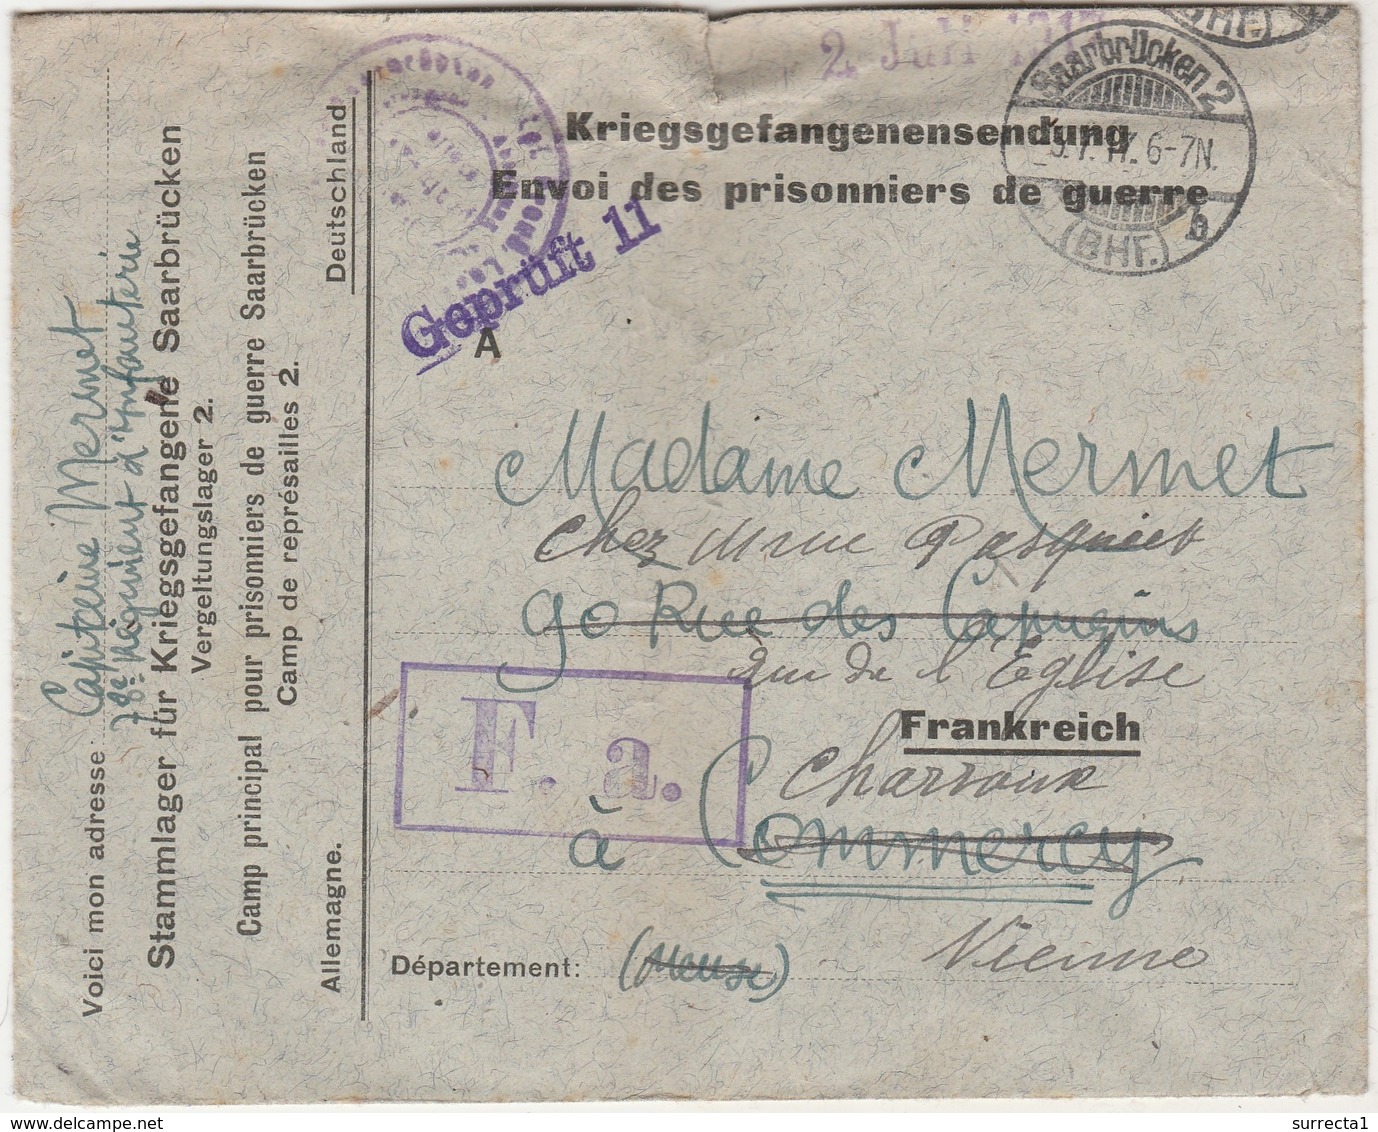 2. Juli 1917
Saarbrücken 2
(BHF.)
5.7.17. 6-7N.
b
(BHF.)
Kriegsgefangenensendung
Envoi des prisonniers de guerre
Geprüft 11
A
Madame Mermet
Chez Mme Pasquiet
90 Rue des Capucins
Rue de l'Eglise
F. a.
Frankreich
Charroux
à Commercy
Département: (Meuse)
Vienne
Voici mon adresse: Capitaine Mermet
78e Régiment d'Infanterie
Stammlager für Kriegsgefangene Saarbrücken
Vergeltungslager 2.
Camp principal pour prisonniers de guerre Saarbrücken
Camp de représailles 2.
Allemagne.
Deutschland
delcampe.net
surrecta1